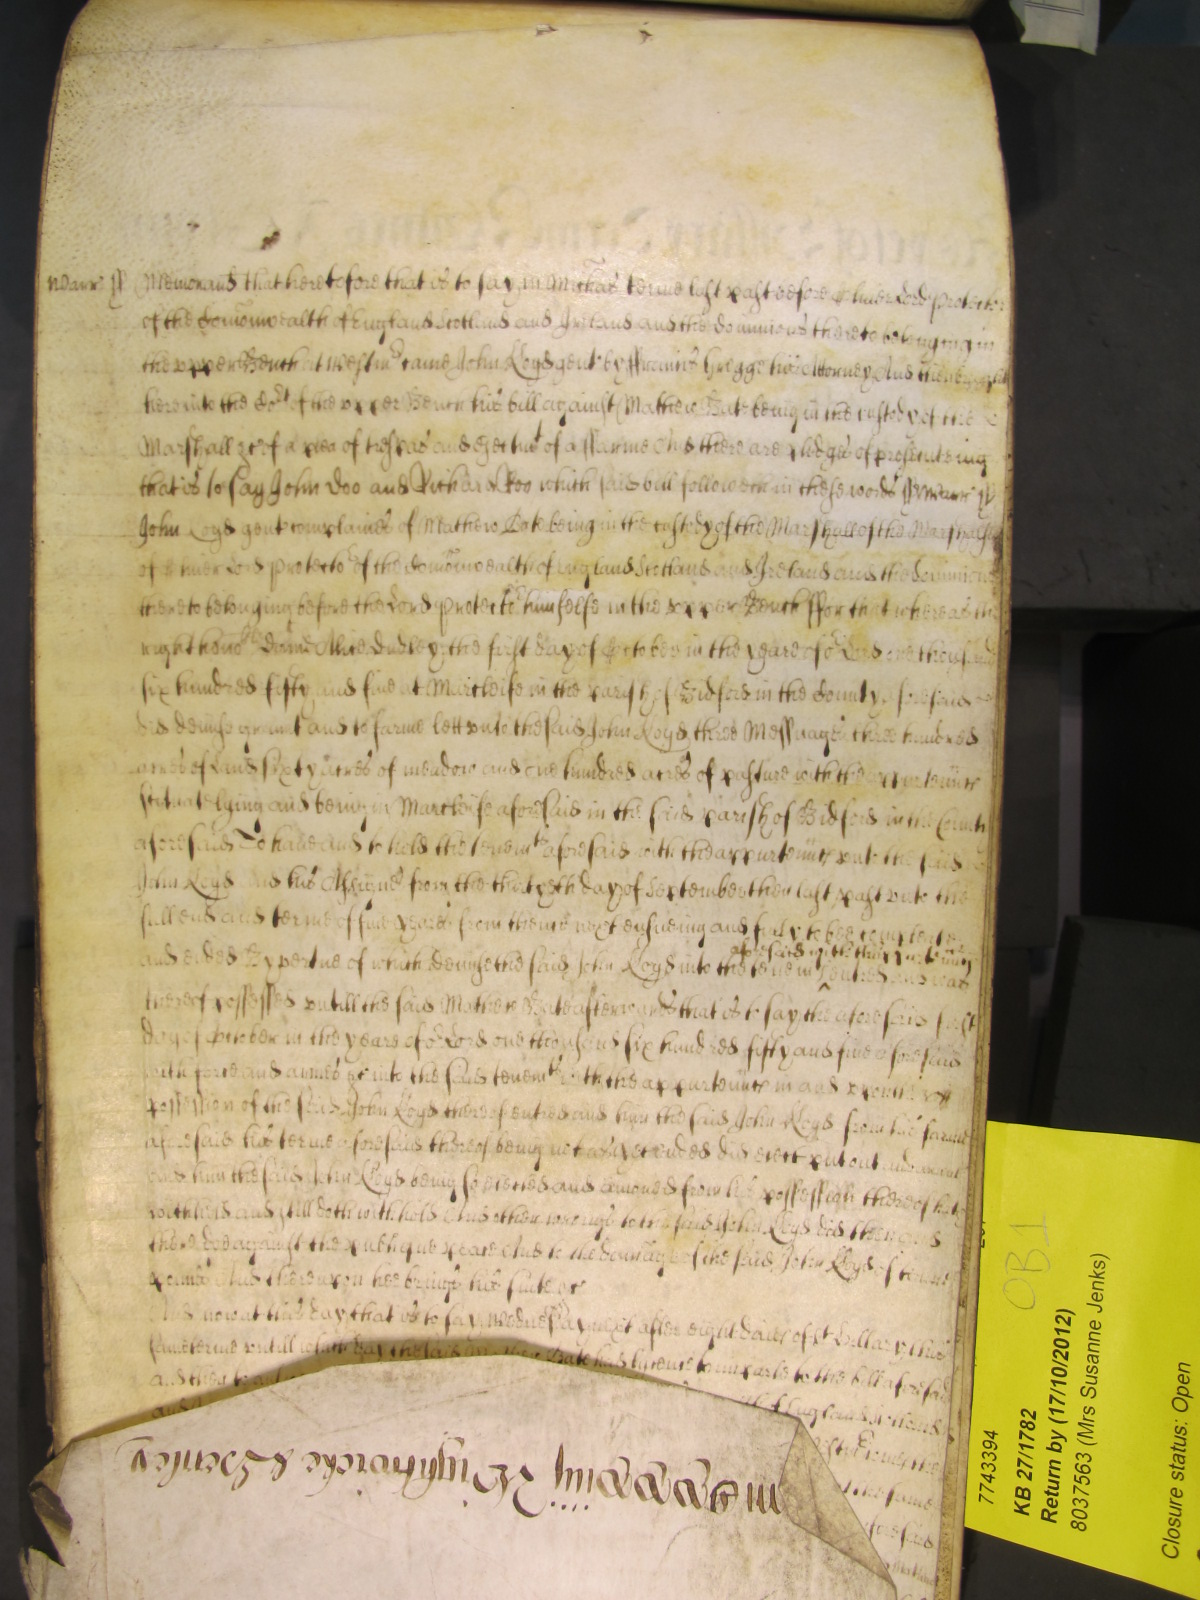 Warr ss Memorand that heretofore that is to say in Michas terme last past before Oliver Lord Protector
of the Comonwealth of England Scotland and Ireland and the dominions thereto belonging in
the upper Bench at Westmr came John Loyd gent by Francis Gregge his Attorney And then brought
here into the Cort of the upper Bench his bill against Mathew Bate being in the custody of the
Marshall &c of a plea of trespas and ejectmt of a ffarme And there are pledges of prosecuteing
that is to say John Doo and Richard Roo which said bill followeth in these words ss Warr ss
John Loyd gent complaines of Mathew Bate being in the custody of the Marshall of the Marshalsey
of Oliver Lord Protector of the Comonwealth of England Scotland and Ireland and the dominions
thereto belonging before the Lord Protector himselfe in the upper Bench ffor that whereas the
right honoble Dame Alice Dudley the first day of October in the yeare of or Lord one thousand
six hundred fifty and five at Marcleife in the parish of Bidford in the County aforesaid
did demise grant and to farme lett unto the said John Loyd three Messuages three hundred
acres of land sixty acres of meadow and one hundred acres of pasture with the appurtennces
scituate lying and being in Marcleife aforesaid in the said parish of Bidford in the County
aforesaid To have and to hold the tenemts aforesaid with the appurtennces unto the said
John Loyd and his Assignes from the thirtyth day of September then last past unto the
full end and terme of five yeares from thence next ensueing and fully to bee compleate
and ended By vertue of which demise the said John Loyd into the tenemts aforesaid with thappurtennces entred and was
thereof possessed untill the said Mathew Bate afterwards that is to say the aforesaid first
day of October in the yeare of or Lord one thousand six hundred fifty and five aforesaid
with force and armes &c into the said tenemts with the appurtennces in and upon the
possession of the said John Loyd thereof entred and him the said John Loyd from his farme
aforesaid his terme aforesaid thereof being not as yet ended did eject put out and amove
And him the said John Loyd being so ejected and amoved from his possession thereof hath
withheld and still doth withhold And other wrongs to the said John Loyd did then and
there doe against the publique peace And to the dammage of the said John Loyd of
pounds And thereupon hee brings his suite &c
And now at this day that is to say Wednesday next after eight daies of St Hillary this
same terme untill which day the said Mathew Bate had lycence to imparle to the bill aforesaid
and then to
and of England Scotland
the same
aforesaid
Wightwicke & Henley
7743394
KB 27/1782
Return by (17/10/2012)
8037563 (Mrs Susanne Jenks)
Closure status: Open
OB1